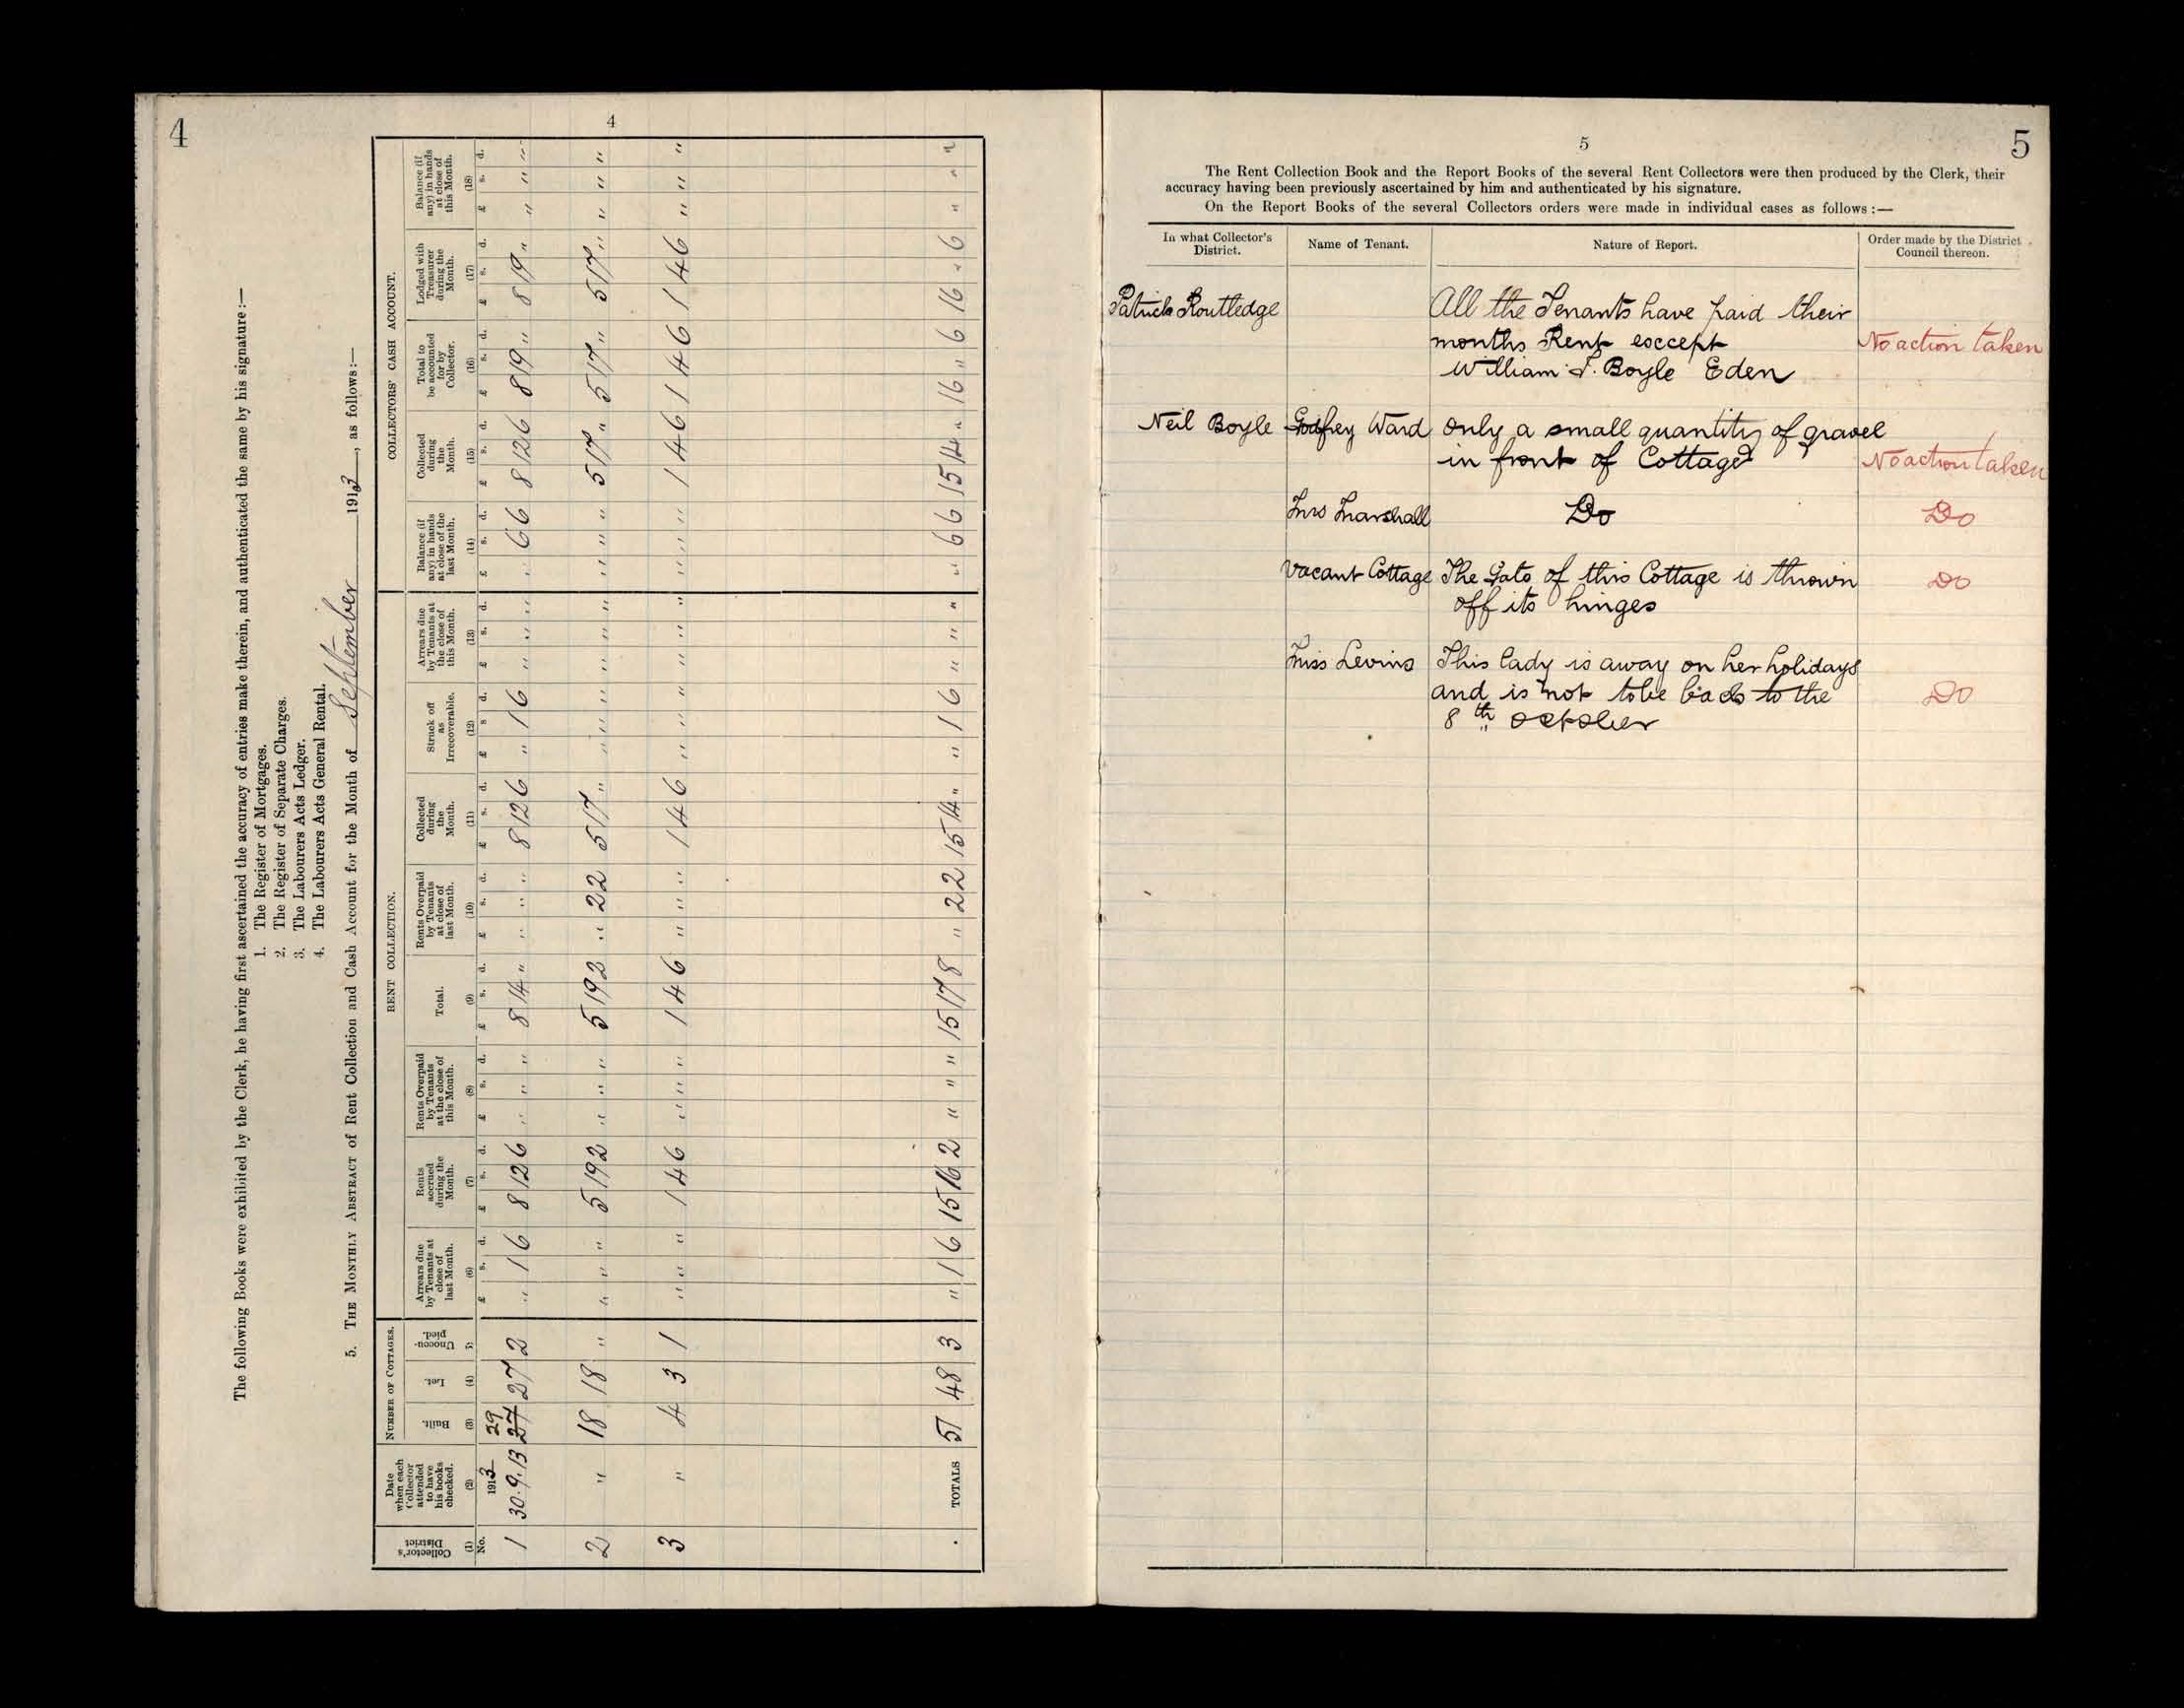 4
4
The following Books were exhibited by the Clerk, he having first ascertained the accuracy of entries make therein, and authenticated the same by his signature:—
1. The Register of Mortgages.
2. The Register of Separate Charges.
3. The Labourers Acts Ledger.
4. The Labourers Acts General Rental.
5. THE MONTHLY ABSTRACT of Rent Collection and Cash Account for the Month of September 1913, as follows:—
NUMBER OF COTTAGES. RENT COLLECTION. COLLECTORS' CASH ACCOUNT.
Collector's District
Date when each Collector attended to have his books checked.
Built.
Let.
Unoccupied.
Arrears due by Tenants at close of last Month.
Rents accrued during the Month.
Rents Overpaid by Tenants at the close of this Month.
Total.
Rents Overpaid by Tenants at close of last Month.
Collected during the Month.
Struck off as Irrecoverable.
Arrears due by Tenants at the close of this Month.
Balance (if any) in hands at close of the last Month.
Collected during the Month.
Total to be accounted for by Collector.
Lodged with Treasurer during the Month.
Balance (if any) in hands at close of this Month.
(1) (2) (3) (4) (5) (6) (7) (8) (9) (10) (11) (12) (13) (14) (15) (16) (17) (18)
No. 1913 £ s. d. £ s. d. £ s. d. £ s. d. £ s. d. £ s. d. £ s. d. £ s. d. £ s. d. £ s. d. £ s. d. £ s. d. £ s. d.
1 30.9.13 29 27 27 2 " 1 6 8 12 6 " " " 8 14 " " " " 8 12 6 " 1 6 " " " " 6 6 8 12 6 8 19 " 8 19 " " " "
2 " 18 18 " " " " 5 19 2 " " " 5 19 2 " 2 2 5 17 " " " " " " " " " " 5 17 " 5 17 " 5 17 " " " "
3 " 4 3 1 " " " 1 4 6 " " " 1 4 6 " " " 1 4 6 " " " " " " " " " 1 4 6 1 4 6 1 4 6 " " "
TOTALS 51 48 3 " 1 6 15 16 2 " " " 15 17 8 " 2 2 15 14 " " 1 6 " " " " 6 6 15 14 " 16 " 6 16 " 6 " " "
5
5
The Rent Collection Book and the Report Books of the several Rent Collectors were then produced by the Clerk, their
accuracy having been previously ascertained by him and authenticated by his signature.
On the Report Books of the several Collectors orders were made in individual cases as follows :—
In what Collector's District. Name of Tenant. Nature of Report. Order made by the District Council thereon.
Patrick Routledge All the Tenants have paid their
months Rent except No action taken
William J. Boyle Eden
Neil Boyle Godfrey Ward only a small quantity of gravel
in front of Cottage No action taken
Mrs Marshall Do Do
Vacant Cottage The Gate of this Cottage is thrown Do
off its hinges
Miss Levins This lady is away on her holidays
and is not to be back to the Do
8th October